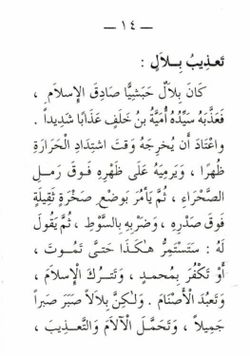 — ١٤ —
تَعذِيبُ بِـلاَلٍ :
كَانَ بِلاَلٌ حَبَشِيًّا صَادِقَ الإِسلاَمِ ،
فَعَذَّبَهُ سَيِّدُهُ أُمَيَّةُ بنُ خَلَفٍ عَذَابًا شَدِيداً .
وَاعتَادَ أَن يُخرِجَهُ وَقتَ اشتِدَادِ الحَرَارَةِ
ظُهرًا ، وَيَرمِيَهُ عَلَى ظَهْرِهِ فَـوقَ رَمـلِ
الصَّحْرَاءِ ، ثُمَّ يَأمُرَ بِوَضعِ صَخْرَةٍ ثَقِيلَةٍ
فَوقَ صَدْرِهِ ، وَضَربِهِ بِالسَّوْطِ ، ثُمَّ يَقُولَ
لَهُ : سَتَستَمِرُّ هٰـكَذَا حَتـَّى تَمُوتَ ،
أَو تَكْفُرَ بِمُحمدٍ ، وَتَتـرُكَ الإِسلاَمَ ،
وَتَعبُدَ الأَصنَامَ . وَلٰـكِنَّ بِلاَلاً صَبَرَ صَبراً
جَمِيلاً ، وَتَحَمَّلَ الآلاَمَ وَالتَّعذِيبَ ،